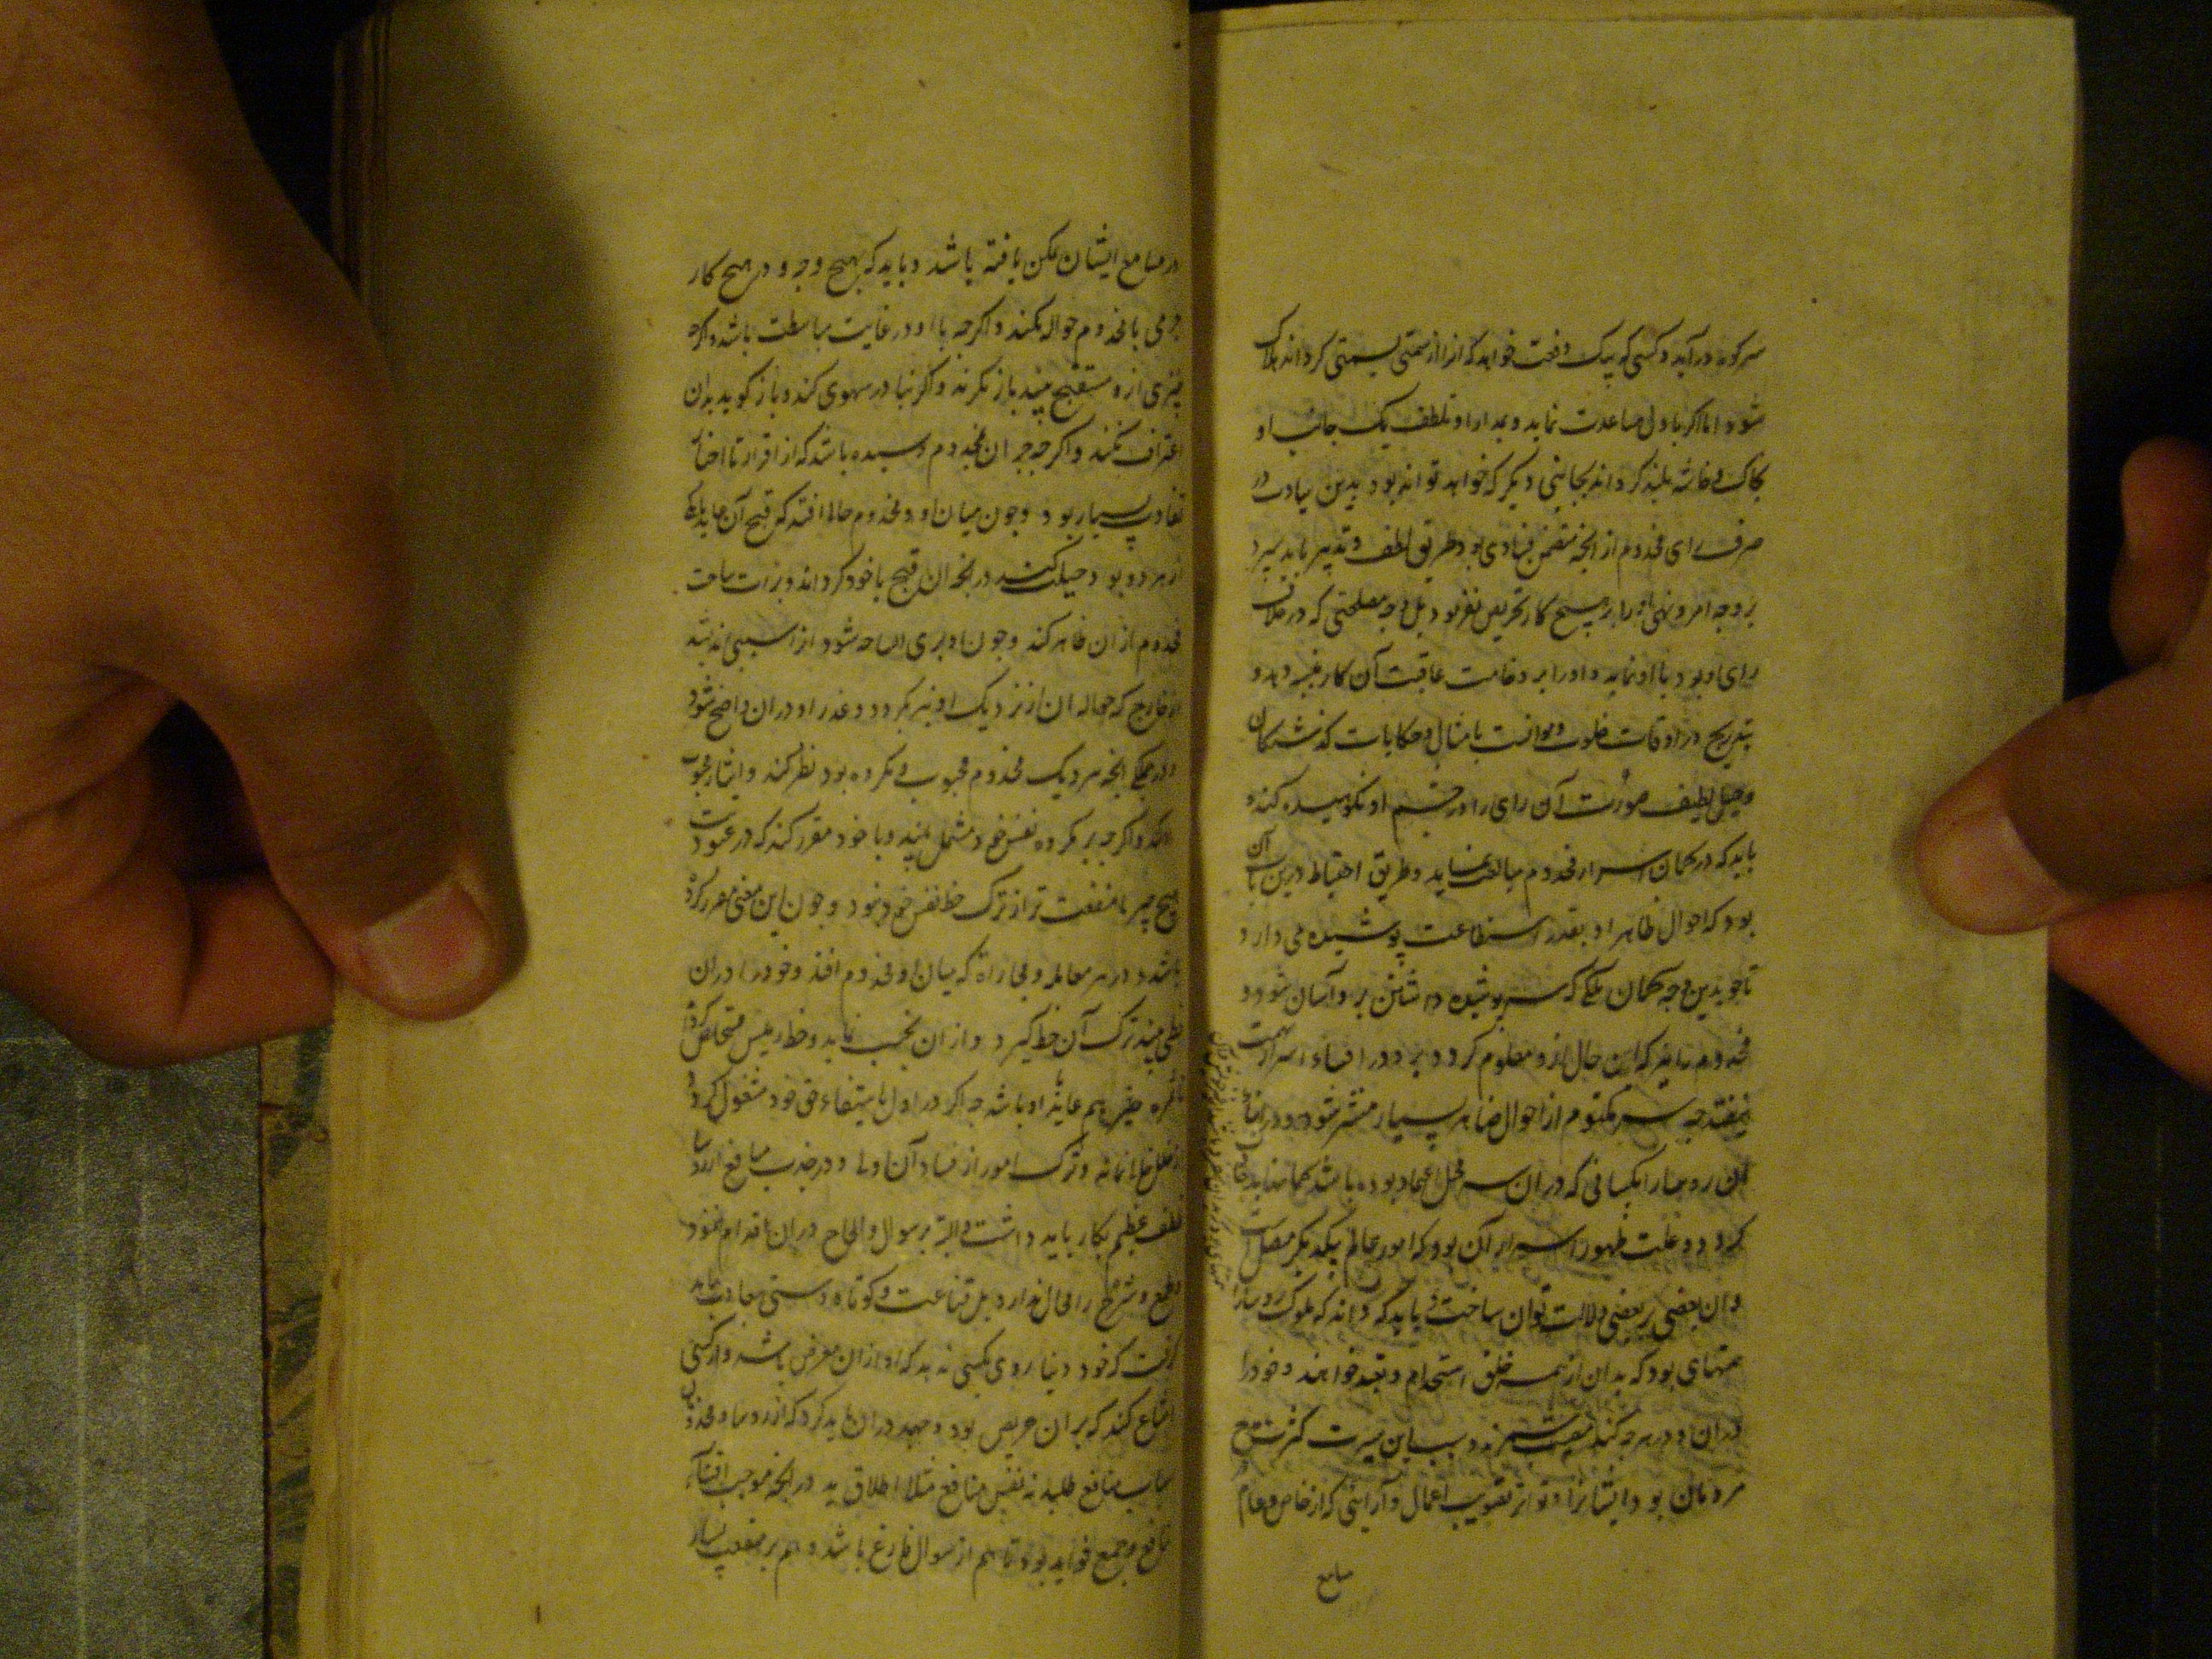 سرکوه درآید و کسی که بیک دفعت خواهد که آنرا از سمتی بسمتی گرداند هلاک
شود اما اگر باول مساعدت نماید و بمدارا و تلطف یک جانب او
بخاک و خاشه بلند گرداند بجانبی دیگر که خواهد تواند بود بدین سیاقت در
صرف رای مخدوم از آنچه متضمن فسادی بود طریق لطف و تدبیر باید سپرد
بر وجه امر و نهی او را بر هیچ کار تحریض نفرمود بل وجه مصلحتی که در خلاف
رای او بود با او نماید و او را بر وخامت عاقبت آن کار تنبیه دهد و
بتدریج در اوقات خلوت و موانست بامثال و حکایات گذشتگان
و حیل لطیف صورت آن رای را در چشم او نکوهیده کند و
باید که در کتمان اسرار مخدوم مبالغت نماید و طریق احتیاط درین باب آن
بود که احوال ظاهر او بقدر استطاعت پوشیده می دارد
تا چون بدین وجه کتمان ملکه کند سر پوشیده داشتن برو آسان شود و
مخدوم را نیز که این حال ازو معلوم گردد برو در افشاء اسرار تهمت
نیفتد چه سر مکتوم از احوال ظاهر بسیار منتشر شود و در اثنای
آن رؤسا را بکسانی که در آن سر محل اعتماد بوده باشند گمانها بد
گردد و علت ظهور اسرار آن بود که امور عالم بیکدیگر متصل است
و از بعضی بر بعضی دلالت توان ساخت و باید که داند که ملوک و رؤسا را
همتهای بود که بدان از همه خلق استخدام و تعبد خواهند و خود را
در آن و در هرچه کنند مصیب شمرند و سبب این سیرت کثرت مدح
مردمان بود ایشانرا و تواتر تصویب اعمال و آرایی که از خاص و عام
مسامع
در مسامع ایشان تمکن یافته باشد و باید که بهیچ وجه و در هیچ کار
جرمی با مخدوم حواله نکند و اگرچه با او در غایت مباسطت باشد و اگر
چیزی ازو مستقبح بیند باز نگرند و اگر بنادر سهوی کند و باز گوید بدان
اعتراف نکند و اگرچه خبر آن بمخدوم رسیده باشد که از اقرار تا اخبار
تفاوت بسیار بود و چون میان او و مخدوم حالی افتد که قبح آن عاید بیکی
از هر دو بود حیلت کند در آنکه آن قبح با خود گرداند و براءت ساحت
مخدوم از آن ظاهر کند و چون او بری الساحه شود از آن سببی اندیشد
از خارج که حواله آن از نزدیک او نیز بگردد و عذر او در آن واضح شود
و در هر یکی آنچه نزدیک مخدوم محبوب و مکروه بود نظر کند و ایثار محبوب
او کند و اگرچه بر مکروه نفس خود مشتمل بیند و با خود مقرر کند که در عبودیت
هیچ چیز با منفعت تر از ترک حظ نفس خود نبود و چون این معنی مقرر کرده
باشد در هر معامله و مجاراة که میان او و مخدوم افتد و خود را در آن
حظی بیند ترک آن حظ گیرد و از آن تجنب نماید و حظ رئیس مستخلص گرداند
تا ثمره خیر هم عاید باو باشد چه اگر در اول باستیفاء حق خود مشغول گردد
از خلل خالی نماند و ترک امور از فساد آن اولی و در جذب منافع از رؤسا
تلطف عظیم بکار باید داشت و البته بر سوال و الحاح در آن اقدام ننمود
و طمع و شره را مجال نداد بل قناعت و کوتاه دستی بعادت باید
گرفت که خود دنیا روی بکسی نهد که او از آن معرض باشد و از کسی
امتناع کند که بر آن حریص بود و جهد در آن باید کرد که از رؤسا و مخدومان
اسباب منافع طلبد نه نفس منافع مثلا اطلاق ید در آنچه موجب اقتناء
منافع و جمع فواید بود تا هم از سوال فارغ باشد و هم بر منفعت بسیار